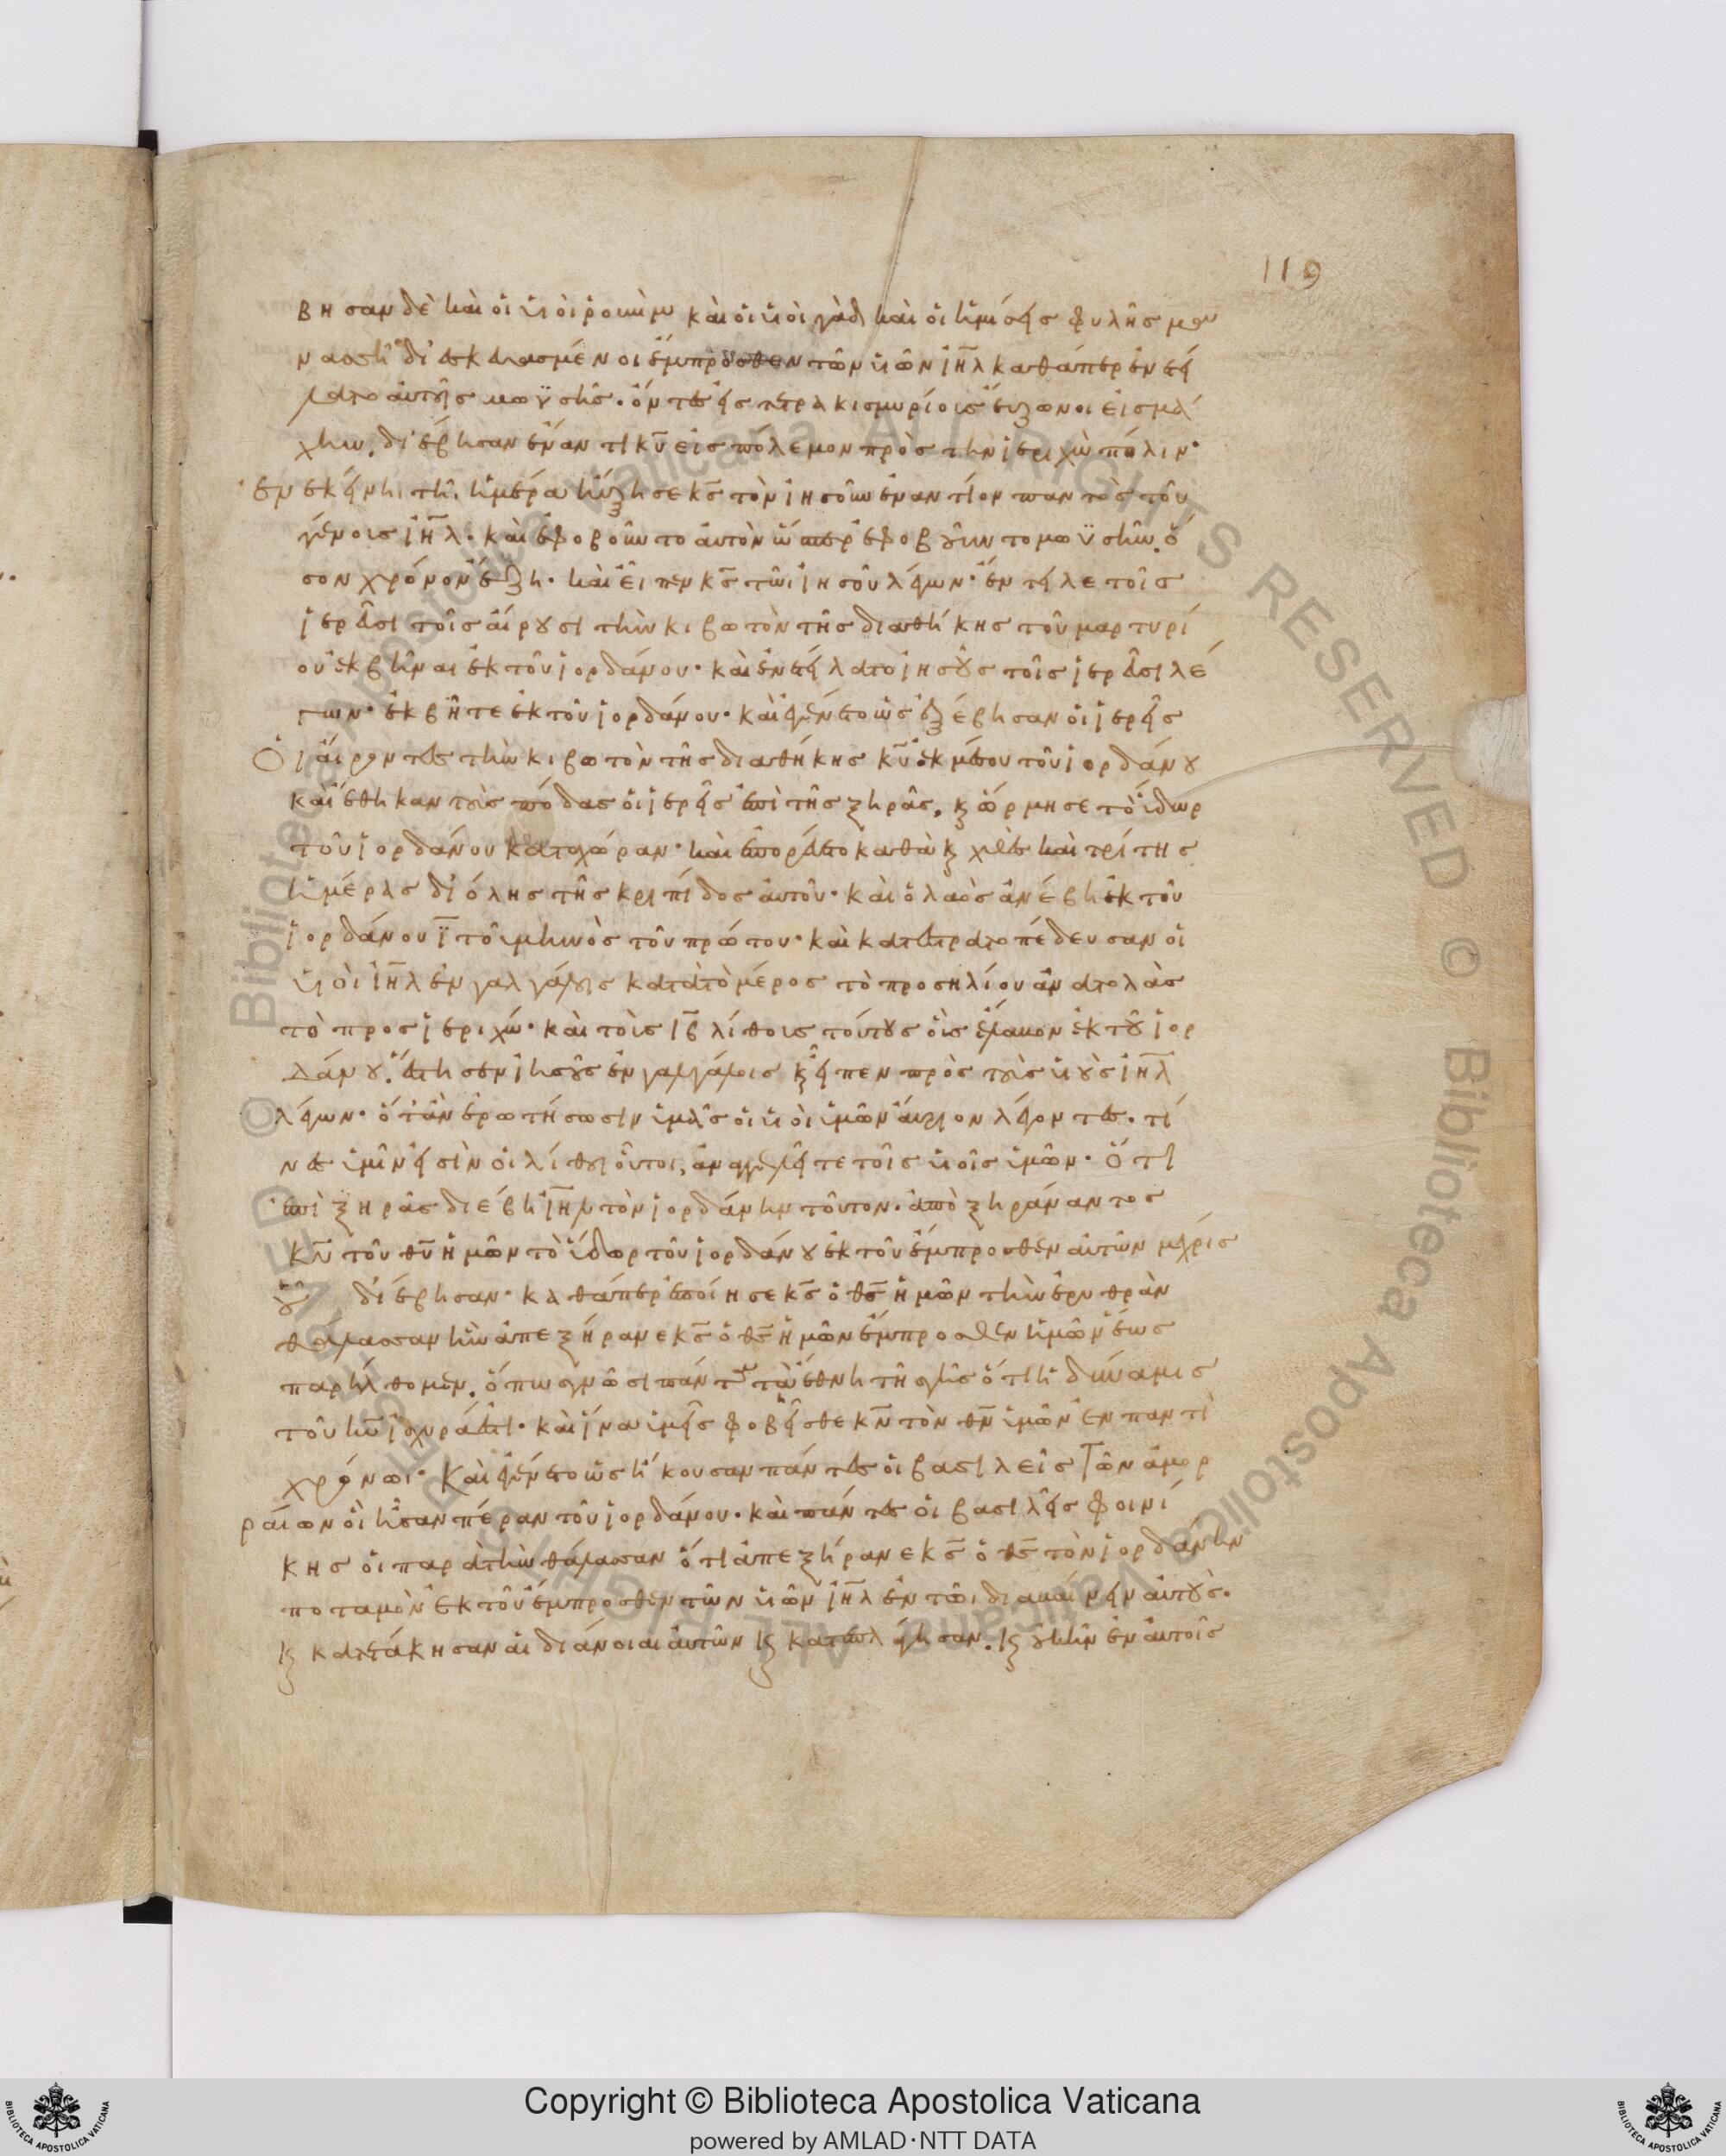 119
βησαν δὲ καὶ οἱ υἱοὶ ρουβὶμ καὶ οἱ υἱοὶ γὰδ καὶ οἱ ἡμίσεις φυλῆς μα
νασσῆ διεσκευασμένοι ἔμπροσθεν τῶν υἱῶν ιῆλ καθάπερ ἐνετεί
λατο αὐτοῖς μωϋσῆς. ὄντες εἰς τετρακισμυρίους εὔζωνοι εἰς μά
χην. διέβησαν ἔναντι κυ εἰς πόλεμον πρὸς τὴν ἱεριχὼ πόλιν·
ἐν ἐκείνηι τῆι ἡμέρα ηὔξησε κς τὸν ἰησοῦν ἐναντίον παντὸς τοῦ
γένους ιῆλ· καὶ ἐφοβοῦντο αὐτὸν ὥσπερ ἐφοβοῦντο μωϋσῆν. ὅ
σον χρόνον ἔζη. καὶ εἶπεν κς τῶι ἰησοῦ λέγων· ἔντειλε τοῖς
ἱερεῦσι τοῖς αἴρουσι τὴν κιβωτὸν τῆς διαθήκης τοῦ μαρτυρί
ου ἐκβῆναι ἐκ τοῦ ἰορδάνου· καὶ ἐνετείλατο ἰησοῦς τοῖς ἱερεῦσι λέ
γων· ἔκβητε ἐκ τοῦ ἰορδάνου· καὶ ἐγένετο ὡς ἐξέβησαν οἱ ἱερεῖς
Οἱ αἴροντες τὴν κιβωτὸν τῆς διαθήκης κυ ἐκ μέσου τοῦ ἰορδάνου
καὶ ἔθηκαν τοὺς πόδας οἱ ἱερεῖς ἐπὶ τῆς ξηρᾶς, κ ὥρμησε τὸ ὕδωρ
τοῦ ἰορδάνου κατὰ χώραν· καὶ ἐπορεύετο καθὰ κ χθὲς καὶ τρίτης
ἡμέρας δι' ὅλης τῆς κρηπίδος αὐτοῦ· καὶ ὁ λαὸς ἀνέβη ἐκ τοῦ
ἰορδάνου ι τοῦ μηνὸς τοῦ πρώτου· καὶ κατεστρατοπέδευσαν οἱ
υἱοὶ ιῆλ ἐν γαλγάλοις κατὰ τὸ μέρος τὸ προσηλίου ἀνατολὰς
τὸ προς ἱεριχώ· καὶ τοὺς ιβ λίθους τούτους οὓς ἔλαβον ἐκ τοῦ ἰορ
δάνου. ἔστησεν ἰησοῦς ἐν γαλγάλοις κ εἶπεν πρὸς τοὺς υἱοὺς ιῆλ
λέγων· ὅταν ἐρωτήσωσιν ὑμᾶς οἱ υἱοὶ ὑμῶν αὔριον λέγοντες. τί
νες ὑμῖν εἰσὶν οἱ λίθοι οὗτοι, ἀναγγελεῖτε τοῖς υἱοῖς ὑμῶν· ὅτι
ἐπὶ ξηρᾶς διέβη ιῆλ τὸν ἰορδάνην τοῦτον. ἀποξηράναντος
κυ τοῦ θυ ἡμῶν τὸ ὕδωρ τοῦ ἰορδάνου ἐκ τοῦ ἔμπροσθεν αὐτῶν μέχρις
οὗ διέβησαν· καθάπερ ἐποίησε κς ὁ θς ἡμῶν τὴν ἐρυθρὰν
θάλασσαν ἣν ἀπεξήρανε κς ὁ θς ἡμῶν ἔμπροσθεν ἡμῶν ἕως
παρήλθομεν. ὅπως γνῶσι πάντα τὰ ἔθνη τῆς γῆς ὅτι ἡ δύναμις
τοῦ κυ ἰσχυρά ἐστι· καὶ ἵνα ὑμεῖς φοβεῖσθε κν τὸν θν ὑμῶν ἐν παντὶ
χρόνωι· Καὶ ἐγένετο ὡς ἤκουσαν πάντες οἱ βασιλεῖς τῶν ἀμορ
ραίων οἳ ἦσαν πέραν τοῦ ἰορδάνου· καὶ πάντες οἱ βασιλεῖς φοινί
κης οἱ παρὰ τὴν θάλασσαν ὅτι ἀπεξήρανε κς ὁ θς τὸν ἰορδάνην
ποταμὸν ἐκ τοῦ ἔμπροσθεν τῶν υἱῶν ιῆλ ἐν τῶι διαβαίνειν αὐτούς.
κ κατετάκησαν αἱ διάνοιαι αὐτῶν κ κατεπλάγησαν. κ οὐκ ἦν ἐν αὐτοῖς
Copyright © Biblioteca Apostolica Vaticana
powered by AMLAD·NTT DATA